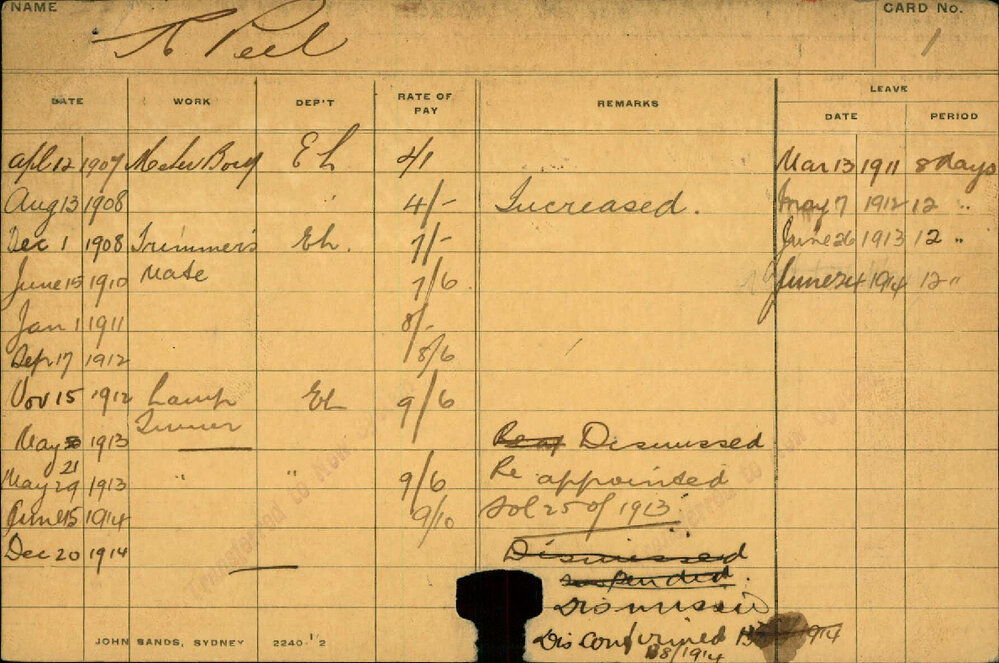 NAME CARD No.
A Peel 1
DATE WORK DEP'T RATE OF PAY REMARKS LEAVE
DATE PERIOD
Apl 12 1907 Meter Boy EL 4/1 Mar 13 1911 8 days
Aug 13 1908 " 4/- Increased. May 7 1912 12 "
Dec 1 1908 Trimmer's EL. 7/- June 26 1913 12 "
June 15 1910 Mate 7/6 June 24 1914 12 "
Jan 1 1911 8/-
Sep 17 1912 8/6
Nov 15 1912 Lamp EL 9/6
May 1913 Trimmer Dismissed
21
May 29 1913 " " 9/6 Re appointed
June 15 1914 9/10 Sol 25 of 1913
Dec 20 1914 Dismissed
Suspended.
Dismissed
Dis confirmed 1914
8/1914
JOHN SANDS, SYDNEY 2240-1/2